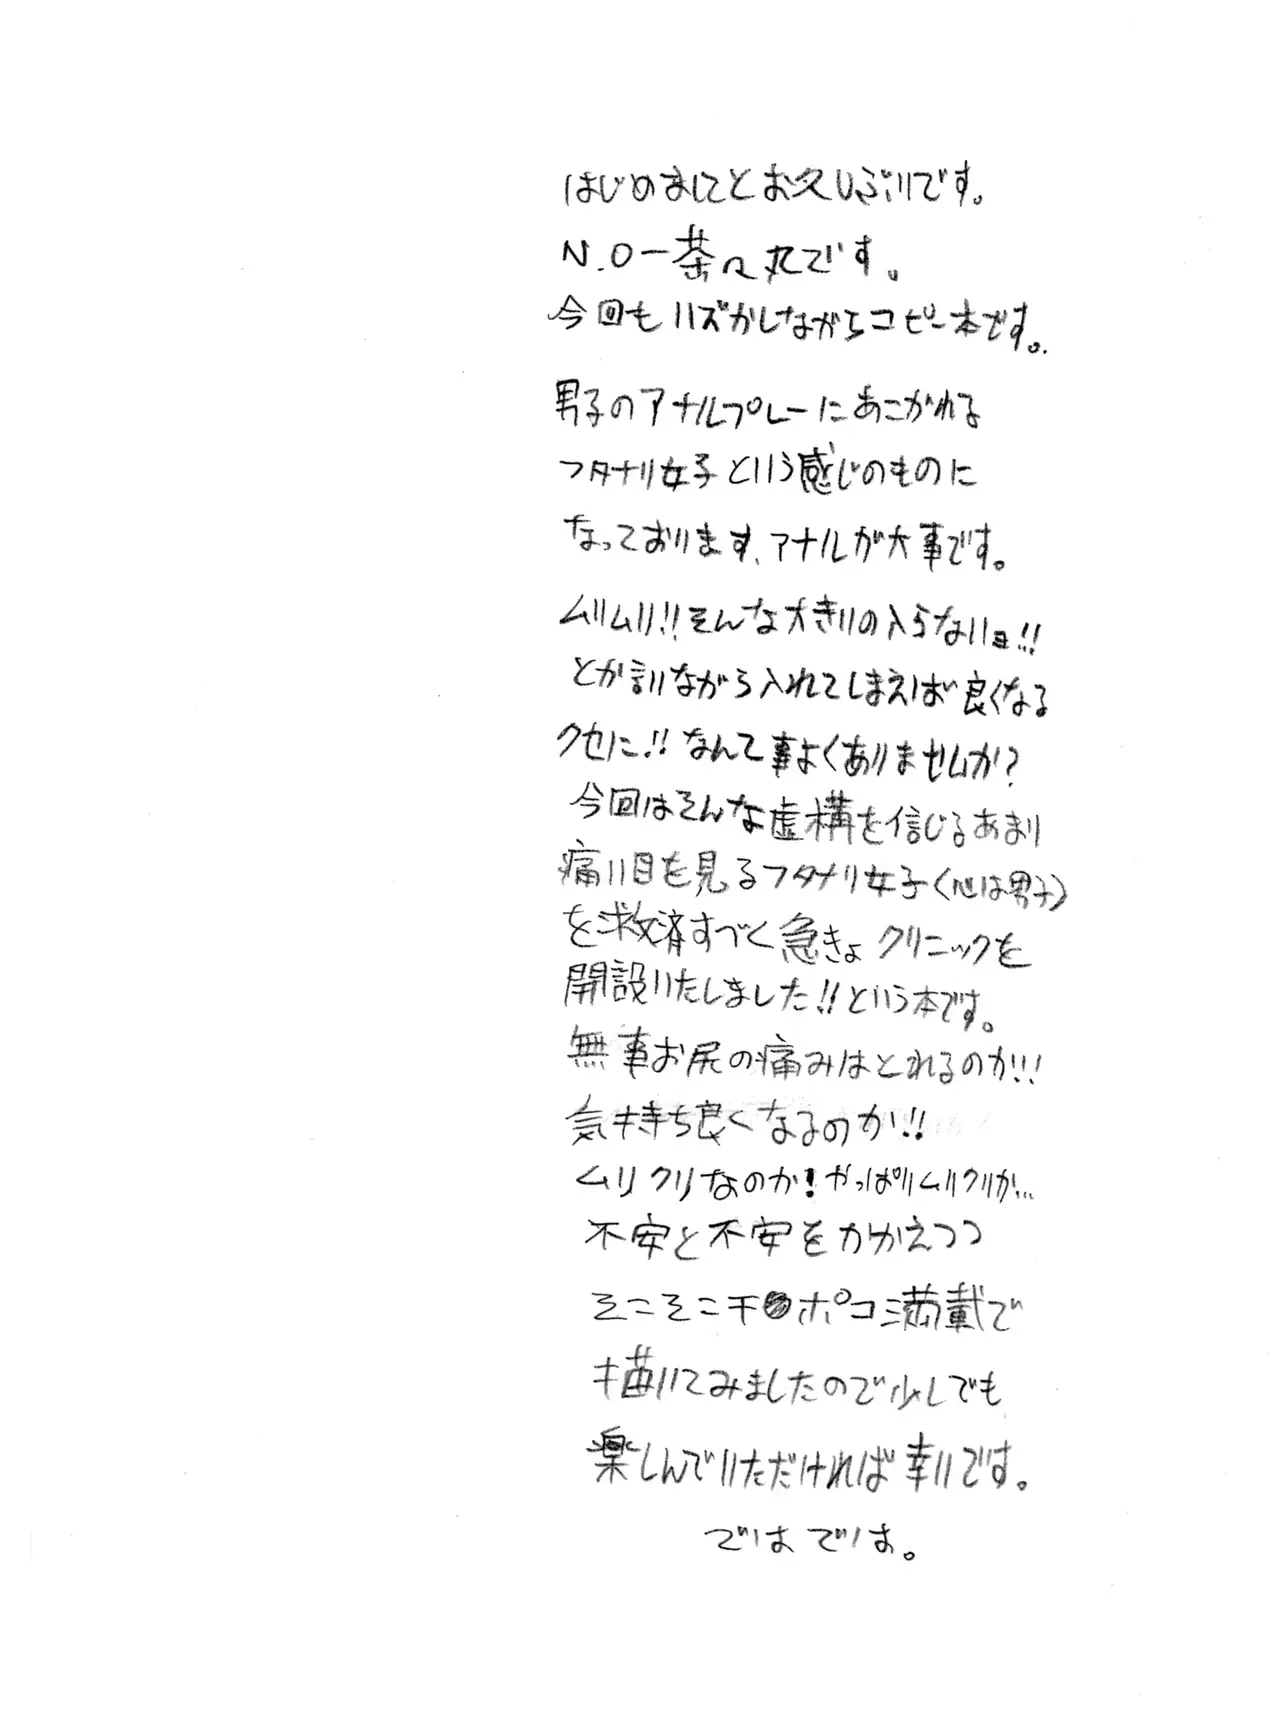 はじめましてとお久しぶりです。
N.O－茶々丸です。
今回もハズかしながらコピー本です。
男子のアナルプレーにあこがれる
フタナリ女子という感じのものに
なっております、アナルが大事です。
ムリムリ!!そんな大きいの入らないョ!!
とか言いながら入れてしまえば良くなる
クセに!!なんて事よくありませんか?
今回はそんな虚構を信じるあまり
痛い目を見るフタナリ女子(心は男子)
を救済すづく急きょクリニックを
開設いたしました!!という本です。
無事お尻の痛みはとれるのか!!
気持ち良くなるのか!!
ムリクリなのか!やっぱりムリクリか…
不安と不安をかかえつつ
そこそこチポコ満載で
描いてみましたので少しでも
楽しんでいただければ幸いです。
ではでは。